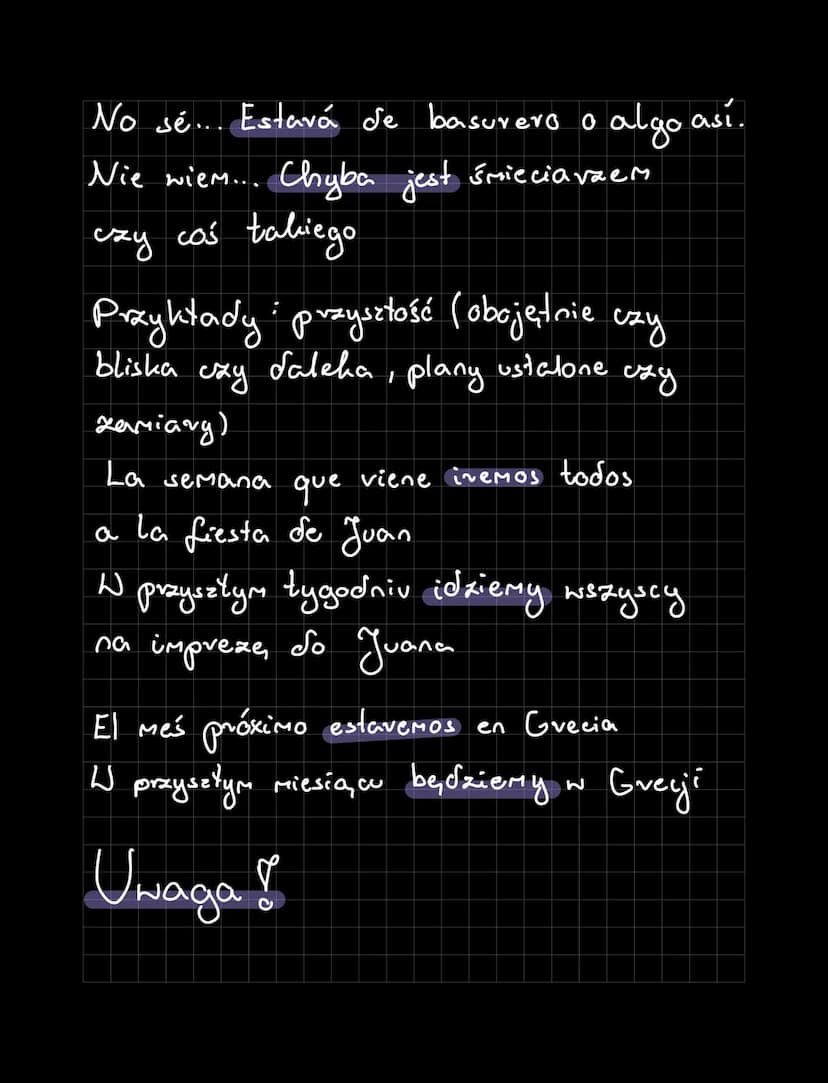 No sé... Estará de basurero o algo así.
Nie wiem... Chyba jest śmieciarzem
czy coś takiego
Przykłady: przyszłość (obojętnie czy
bliska czy daleka, plany ustalone czy
zamiary)
La semana que viene iremos todos
a la fiesta de Juan
W przyszłym tygodniu idziemy wszyscy
na imprezę do Juana
El meś próximo estaremos en Grecia
W przyszłym miesiącu będziemy w Grecji
Uwaga!